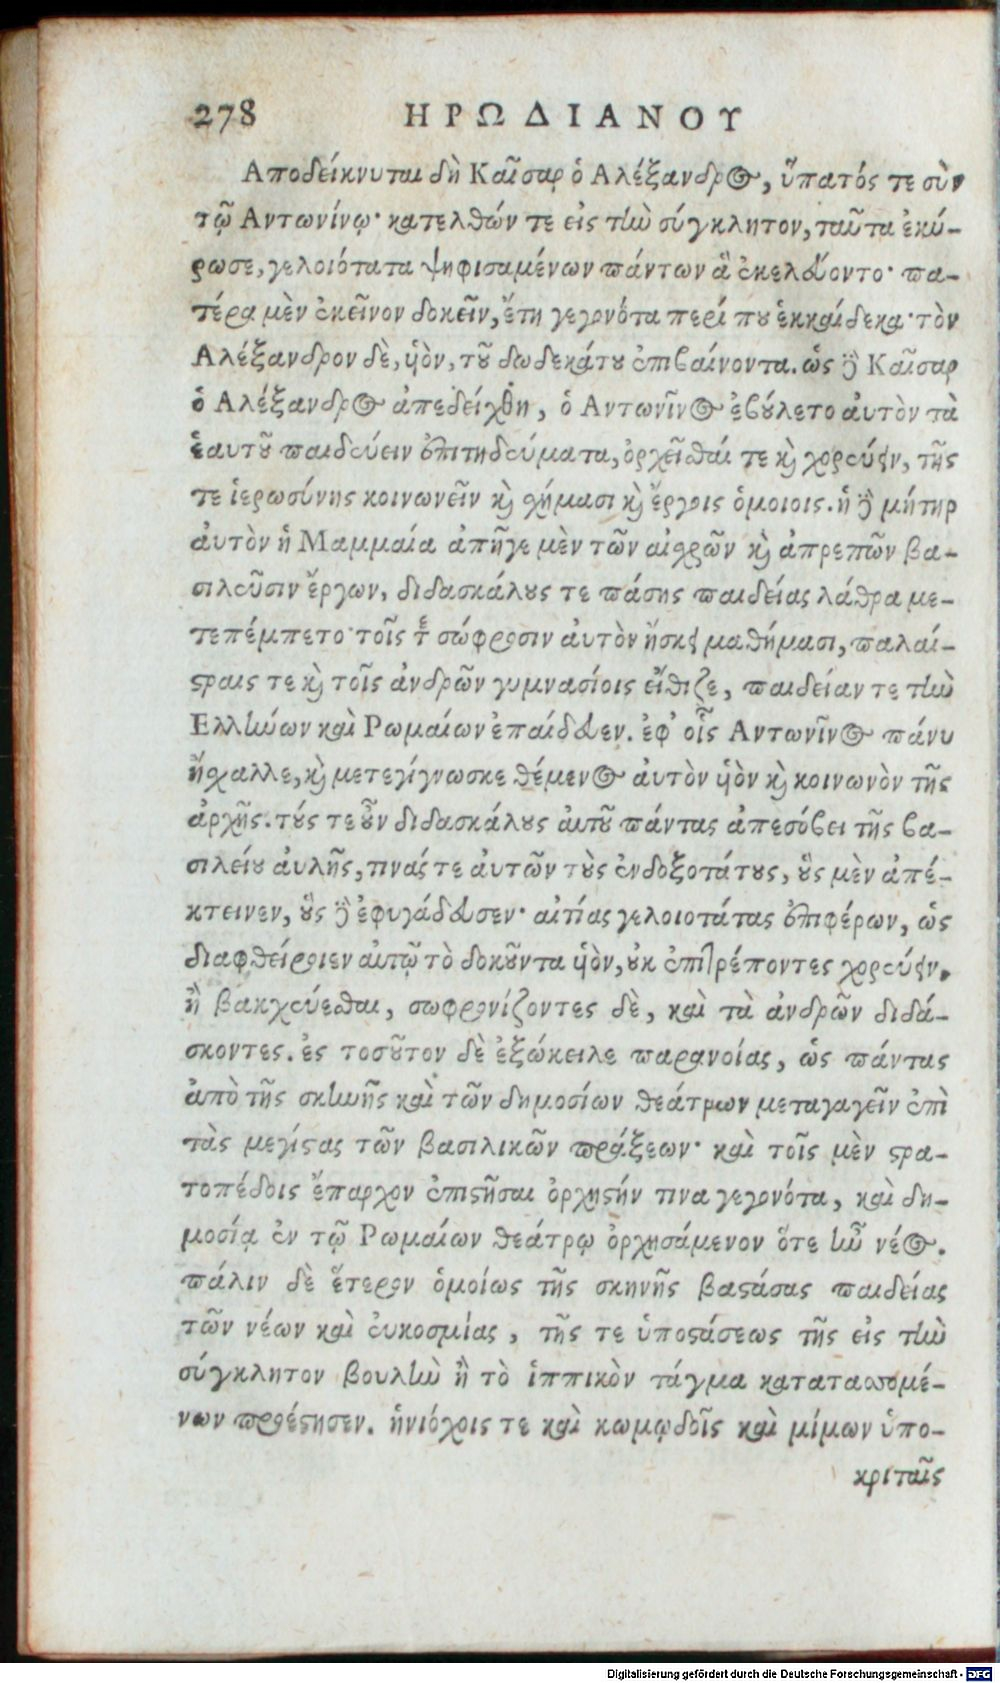 278 ΗΡΩΔΙΑΝΟΥ
Αποδείκνυται δὴ Καῖσαρ ὁ Αλέξανδρος, ὕπατός τε σὺν
τῷ Αντωνίνῳ· κατελθών τε εἰς τὴν σύγκλητον, ταῦτα ἐκύ-
ρωσε, γελοιότατα ψηφισαμένων πάντων ἃ ἐκελεύοντο· πα-
τέρα μὲν ἐκεῖνον δοκεῖν, ἔτη γεγονότα περί που ἑκκαίδεκα· τὸν
Αλέξανδρον δὲ, υἱὸν, τοῦ δωδεκάτου ἐπιβαίνοντα. ὡς δὲ Καῖσαρ
ὁ Αλέξανδρος ἀπεδείχθη, ὁ Αντωνῖνος ἐβούλετο αὐτὸν τὰ
ἑαυτοῦ παιδεύειν ἐπιτηδεύματα, ὀρχεῖσθαί τε καὶ χορεύειν, τῆς
τε ἱερωσύνης κοινωνεῖν καὶ σχήμασι καὶ ἔργοις ὁμοίοις. ἡ δὲ μήτηρ
αὐτὸν ἡ Μαμμαία ἀπῆγε μὲν τῶν αἰσχρῶν καὶ ἀπρεπῶν βα-
σιλεῦσιν ἔργων, διδασκάλους τε πάσης παιδείας λάθρα με-
τεπέμπετο· τοῖς τε σώφροσιν αὐτὸν ἤσκει μαθήμασι, παλαί-
στραις τε καὶ τοῖς ἀνδρῶν γυμνασίοις εἴθιζε, παιδείαν τε τὴν
Ελλήνων καὶ Ρωμαίων ἐπαίδευεν. ἐφ᾽ οἷς Αντωνῖνος πάνυ
ἤσχαλλε, καὶ μετεγίγνωσκε θέμενος αὐτὸν υἱὸν καὶ κοινωνὸν τῆς
ἀρχῆς. τούς τε οὖν διδασκάλους αὐτοῦ πάντας ἀπεσόβει τῆς βα-
σιλείου αὐλῆς, τινάς τε αὐτῶν τοὺς ἐνδοξοτάτους, οὓς μὲν ἀπέ-
κτεινεν, οὓς δὲ ἐφυγάδευσεν· αἰτίας γελοιοτάτας ἐπιφέρων, ὡς
διαφθείροιεν αὐτῷ τὸ δοκοῦντα υἱὸν, οὐκ ἐπιτρέποντες χορεύειν,
ἢ βακχεύεσθαι, σωφρονίζοντες δὲ, καὶ τὰ ἀνδρῶν διδά-
σκοντες. ἐς τοσοῦτον δὲ ἐξώκειλε παρανοίας, ὡς πάντας
ἀπὸ τῆς σκηνῆς καὶ τῶν δημοσίων θεάτρων μεταγαγεῖν ἐπὶ
τὰς μεγίστας τῶν βασιλικῶν πράξεων· καὶ τοῖς μὲν στρα-
τοπέδοις ἔπαρχον ἐπιστῆσαι ὀρχηστήν τινα γεγονότα, καὶ δη-
μοσίᾳ ἐν τῷ Ρωμαίων θεάτρῳ ὀρχησάμενον ὅτε ἦν νέος.
πάλιν δὲ ἕτερον ὁμοίως τῆς σκηνῆς βαστάσας παιδείας
τῶν νέων καὶ εὐκοσμίας, τῆς τε ὑποστάσεως τῆς εἰς τὴν
σύγκλητον βουλὴν ἢ τὸ ἱππικὸν τάγμα κατατασσομέ-
νων προέστησεν. ἡνιόχοις τε καὶ κωμῳδοῖς καὶ μίμων ὑπο-
κριταῖς
Digitalisierung gefördert durch die Deutsche Forschungsgemeinschaft - DFG